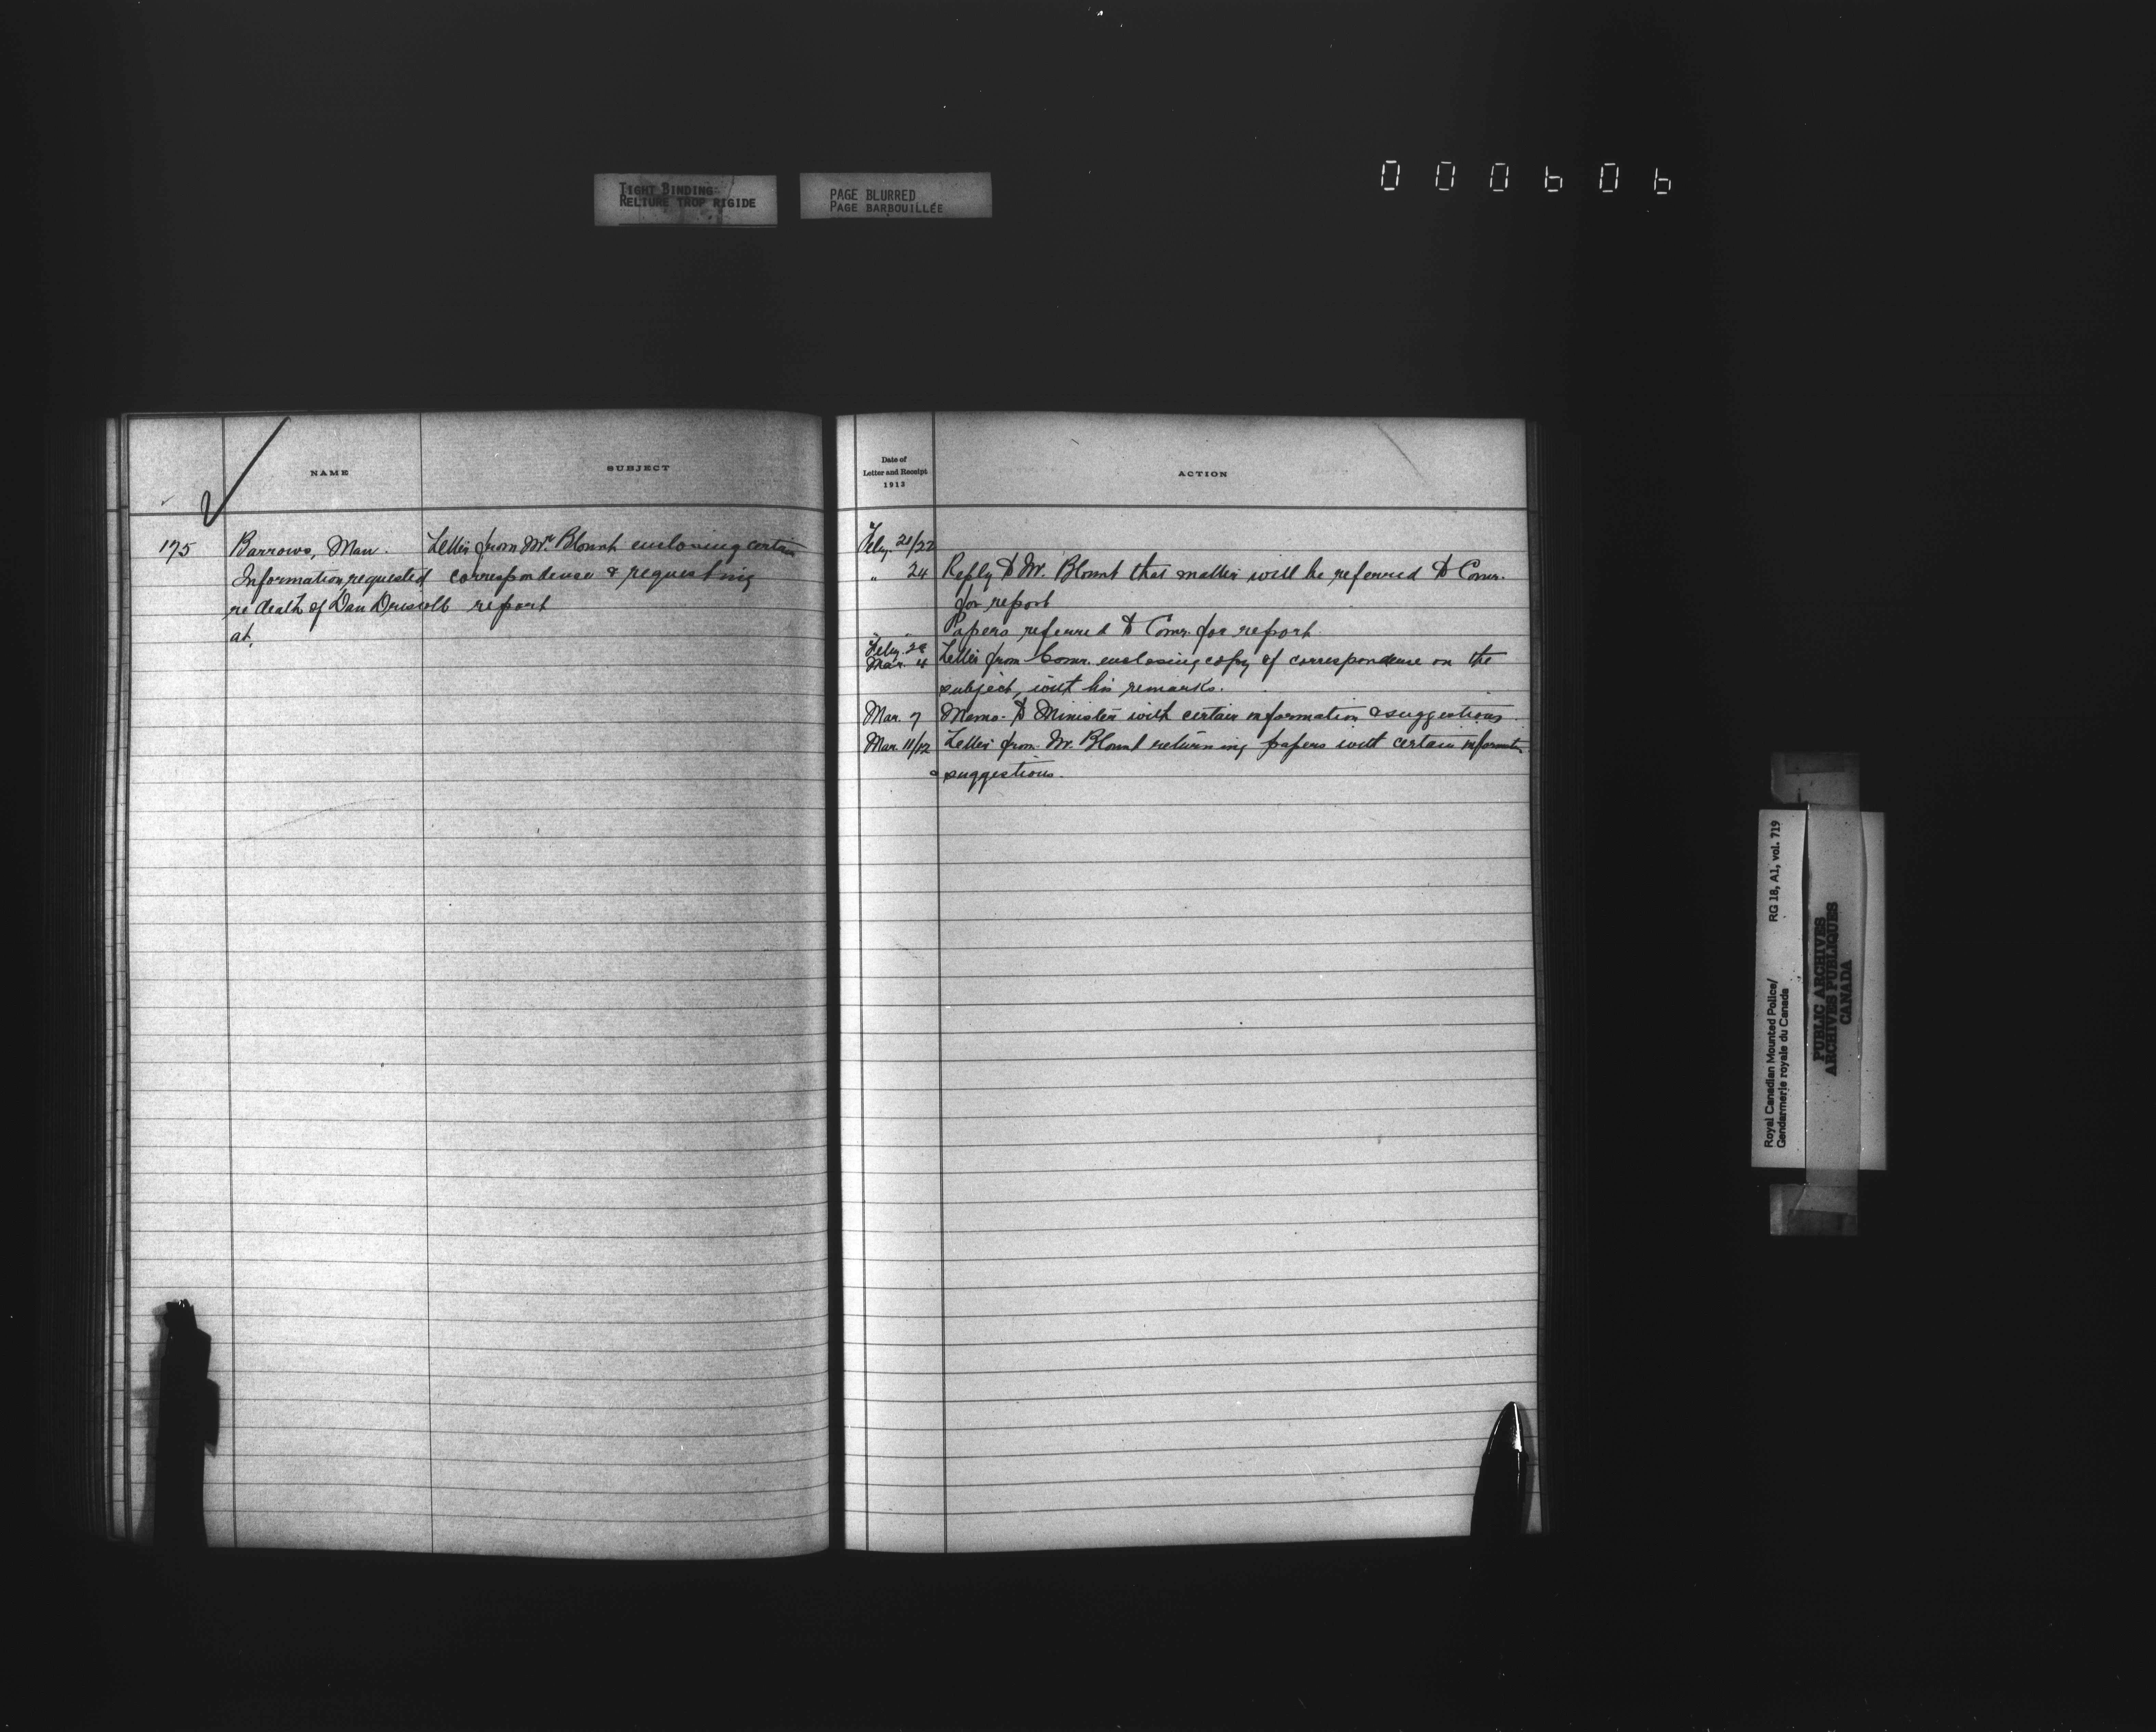 TIGHT BINDING
RELIURE TROP RIGIDE
PAGE BLURRED
PAGE BARBOUILLÉE
000606
NAME
SUBJECT
175
Barrows, Man.
Letter from Mr. Blount enclosing certain
Information requested
correspondence & requesting
re death of Dan Driscoll
report
at.
Date of
Letter and Receipt
1913
ACTION
Feby. 21/22
" 24 Reply to Mr. Blount that matter will be referred to Comr.
for report
" " Papers referred to Comr. for report
Feby. 28
Mar. 4 Letter from Comr. enclosing copy of correspondence on the
subject, with his remarks.
Mar. 7 Memo. to Minister with certain information & suggestions.
Mar. 11/12 Letter from Mr. Blount returning papers with certain information
& suggestions.
Royal Canadian Mounted Police/
Gendarmerie royale du Canada
RG 18, A1, vol. 719
PUBLIC ARCHIVES
ARCHIVES PUBLIQUES
CANADA